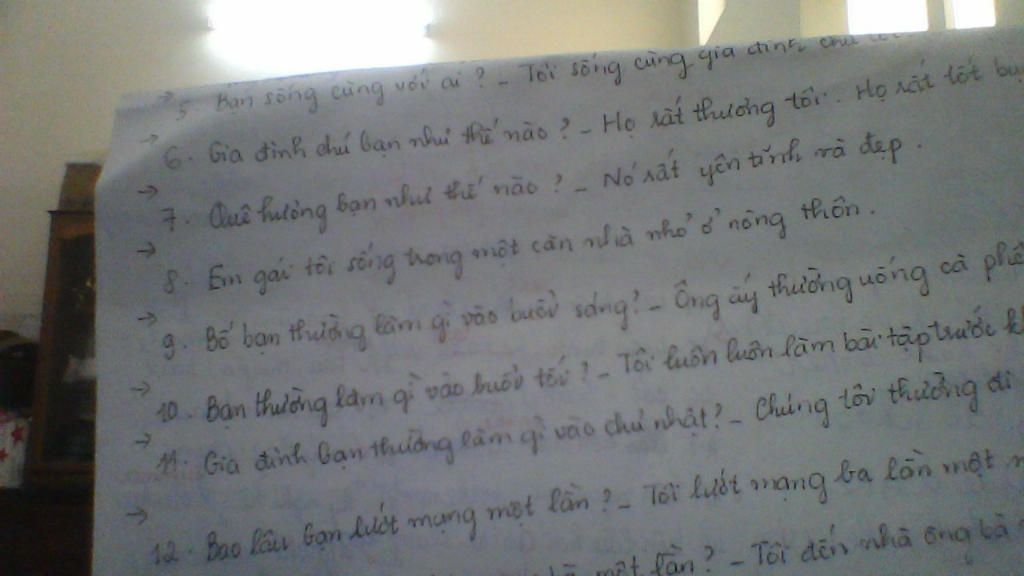 5. Bạn sống cùng với ai? - Tôi sống cùng gia đình chú tôi
6. Gia đình chú bạn như thế nào? - Họ rất thương tôi. Họ rất tốt bụ
7. Quê hương bạn như thế nào? - Nó rất yên tĩnh và đẹp.
8. Em gái tôi sống trong một căn nhà nhỏ ở nông thôn.
9. Bố bạn thường làm gì vào buổi sáng? - Ông ấy thường uống cà phê
10. Bạn thường làm gì vào buổi tối? - Tôi luôn luôn làm bài tập trước k
11. Gia đình bạn thường làm gì vào chủ nhật? - Chúng tôi thường đi
12. Bao lâu bạn lướt mạng một lần? - Tôi lướt mạng ba lần một
một lần? - Tôi đến nhà ông bà